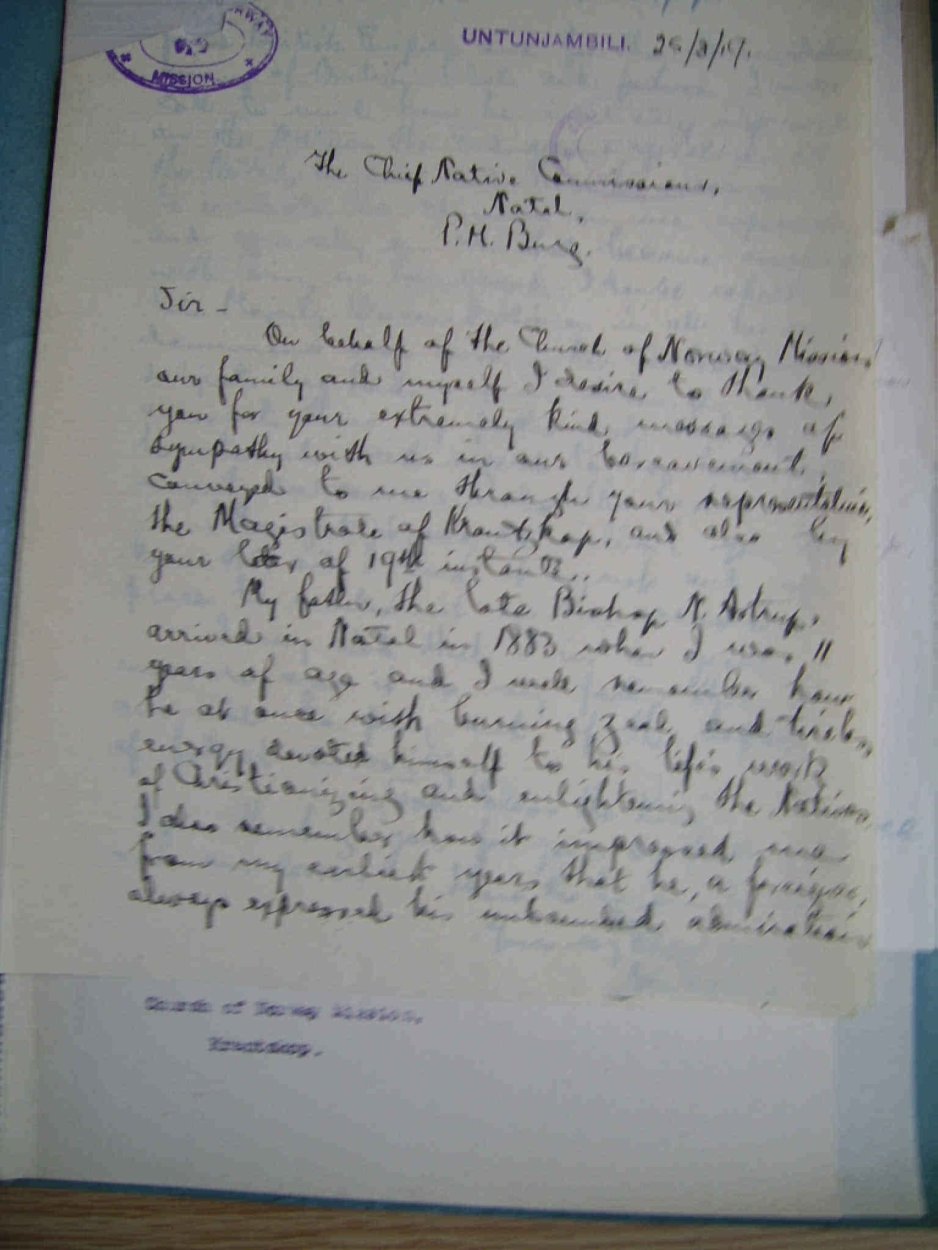 RWAY
MISSION
UNTUNJAMBILI. 26/3/19.
The Chief Native Commissioner,
Natal,
P.M. Burg.
Sir -
On behalf of the Church of Norway Mission,
our family and myself I desire to thank
you for your extremely kind message of
sympathy with us in our bereavement,
conveyed to me through your representative,
the Magistrate of Krantzkop, and also by
your letter of 19th instant.
My father, the late Bishop N. Astrup,
arrived in Natal in 1883 when I was 11
years of age and I well remember how
he at once with burning zeal and tireless
energy devoted himself to his life's work
of Cristianizing and enlightening the Natives.
I also remember how it impressed me
from my earliest years that he, a foreigner,
always expressed his unbounded admiration
Church of Norway Mission,
Krantzkop.